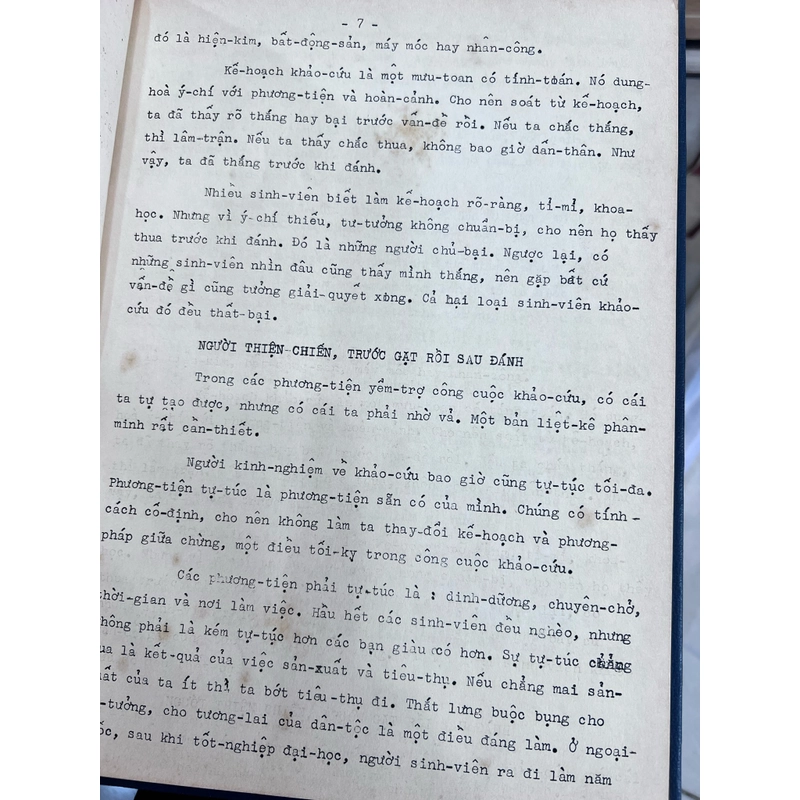 - 7 -
đó là hiện-kim, bất-động-sản, máy móc hay nhân-công.
Kế-hoạch khảo-cứu là một mưu-toan có tính-toán. Nó dung-
hoà ý-chí với phương-tiện và hoàn-cảnh. Cho nên soát từ kế-hoạch,
ta đã thấy rõ thắng hay bại trước vấn-đề rồi. Nếu ta chắc thắng,
thì lâm-trận. Nếu ta thấy chắc thua, không bao giờ dấn-thân. Như
vậy, ta đã thắng trước khi đánh.
Nhiều sinh-viên biết làm kế-hoạch rõ-ràng, tỉ-mỉ, khoa-
học. Nhưng vì ý-chí thiếu, tư-tưởng không chuẩn-bị, cho nên họ thấy
thua trước khi đánh. Đó là những người chủ-bại. Ngược lại, có
những sinh-viên nhìn đâu cũng thấy mình thắng, nên gặp bất cứ
vấn-đề gì cũng tưởng giải-quyết xong. Cả hai loại sinh-viên khảo-
cứu đó đều thất-bại.
NGƯỜI THIỆN-CHIẾN, TRƯỚC GẠT RỒI SAU ĐÁNH
Trong các phương-tiện yểm-trợ công cuộc khảo-cứu, có cái
ta tự tạo được, nhưng có cái ta phải nhờ vả. Một bản liệt-kê phân-
minh rất cần-thiết.
Người kinh-nghiệm về khảo-cứu bao giờ cũng tự-túc tối-đa.
Phương-tiện tự-túc là phương-tiện sẵn có của mình. Chúng có tính-
cách cố-định, cho nên không làm ta thay-đổi kế-hoạch và phương-
pháp giữa chừng, một điều tối-kỵ trong công cuộc khảo-cứu.
Các phương-tiện phải tự-túc là : dinh-dưỡng, chuyên-chở,
thời-gian và nơi làm việc. Hầu hết các sinh-viên đều nghèo, nhưng
hông phải là kém tự-túc hơn các bạn giàu có hơn. Sự tự-túc chẳng
ua là kết-quả của việc sản-xuất và tiêu-thụ. Nếu chẳng mai sản-
ất của ta ít thì ta bớt tiêu-thụ đi. Thắt lưng buộc bụng cho
-tưởng, cho tương-lai của dân-tộc là một điều đáng làm. Ở ngoại-
ốc, sau khi tốt-nghiệp đại-học, người sinh-viên ra đi làm năm